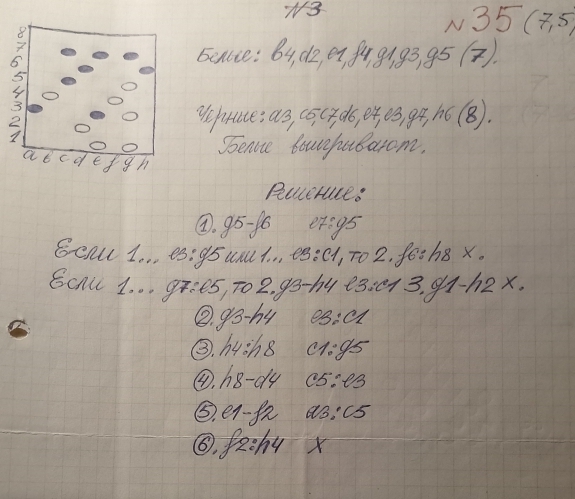 №3
№35 (7,5)
8
7
6
5
4
3
2
1
a b c d e f g h
Белые: b4, d2, e1, f4, g1, g3, g5 (7).
Чёрные: a3, c5, c7, d6, e7, e3, g7, h6 (8).
Белые выигрывают.
Решение:
①. g5-f6 e7:g5
Если 1... e3:g5 или 1... e3:c1, то 2. f6:h8 x.
Если 1... g7:e5, то 2. g3-h4 e3:c1 3. g1-h2 x.
②. g3-h4 e3:c1
③. h4:h8 c1:g5
④. h8-d4 c5:e3
⑤. e1-f2 a3:c5
⑥. f2:h4 x